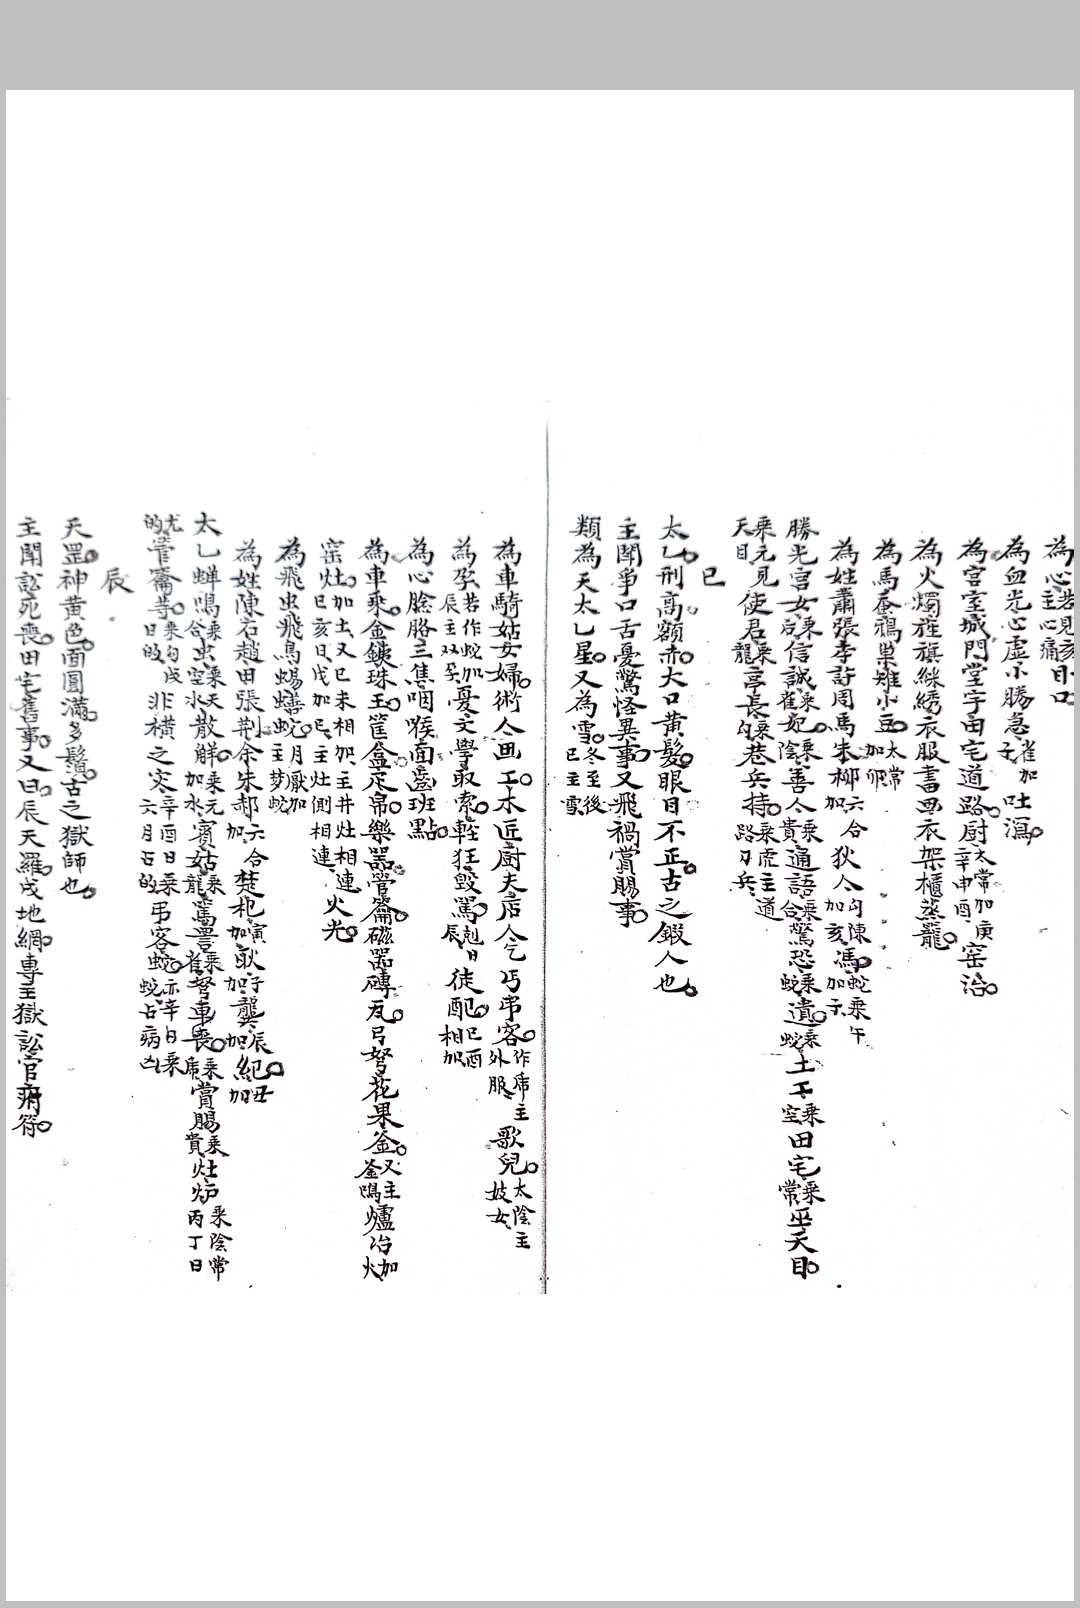 為心若見亥主心痛目口
為血光心虛小勝急雀加子吐瀉
為宮室城門堂宇田宅道路廚太常加庚辛申酉窑冶
為火燭旌旗綵綉衣服書畫衣架櫃蒸籠
為馬蚕鴉巢雉小豆太常加卯
為姓蕭張李許周馬朱柳六合加狄人勾陳加亥馮蛇乘午加六
勝光宮女乘后信誠乘雀妃乘陰善人乘貴通語乘合驚恐乘蛇遺乘蛇土工乘空田宅乘常巫天目
乘元天目見使君乘龍亭長乘勾巷兵持乘虎主道路刀兵
巳
太乙刑高額赤大口黄髮眼目不正古之鍜人也
主鬪爭口舌憂驚怪異事又飛禍賞賜事
類為天太乙星又為雪冬至後巳主雪
為車騎姑女婦術人画工木匠廚夫店人乞丐弔客作虎主外服歌兒太陰主妓女
為孕若作蛇加辰主双孕憂文學取索輕狂毀罵剋日辰徒配巳酉相加
為心臉胳三焦咽喉面齒班點
為車乘金鉄珠玉筐盒疋帛樂器管籥磁器磚瓦弓弩花果釜又主釜鳴爐冶加火
窑灶加土又巳未相加主井灶相連巳亥日戊加巳主灶側相連火光
為飛虫飛鳥蜴蟮蛇月厭加主梦蛇
為姓陳石趙田張荆余朱郝六合加楚杞寅加耿子加龔辰加紀丑加
太乙蝉鳴乘合虫乘空水天散解乘元加水賓姑乘龍罵詈乘雀弩車喪乘虎賞賜乘貴灶炉乘陰常丙丁日
尤的管籥等乘勾戌日的非横之灾辛酉日乘六月占的弔客蛇亦辛日乘蛇占病凶
辰
天罡神黄色面圓滿多鬚古之獄師也
主鬪訟死喪田宅舊事又曰辰天羅戌地網專主獄訟官府符